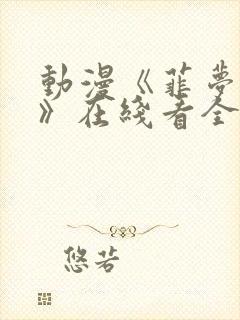 動漫《菲夢
》在綫看全
悠若